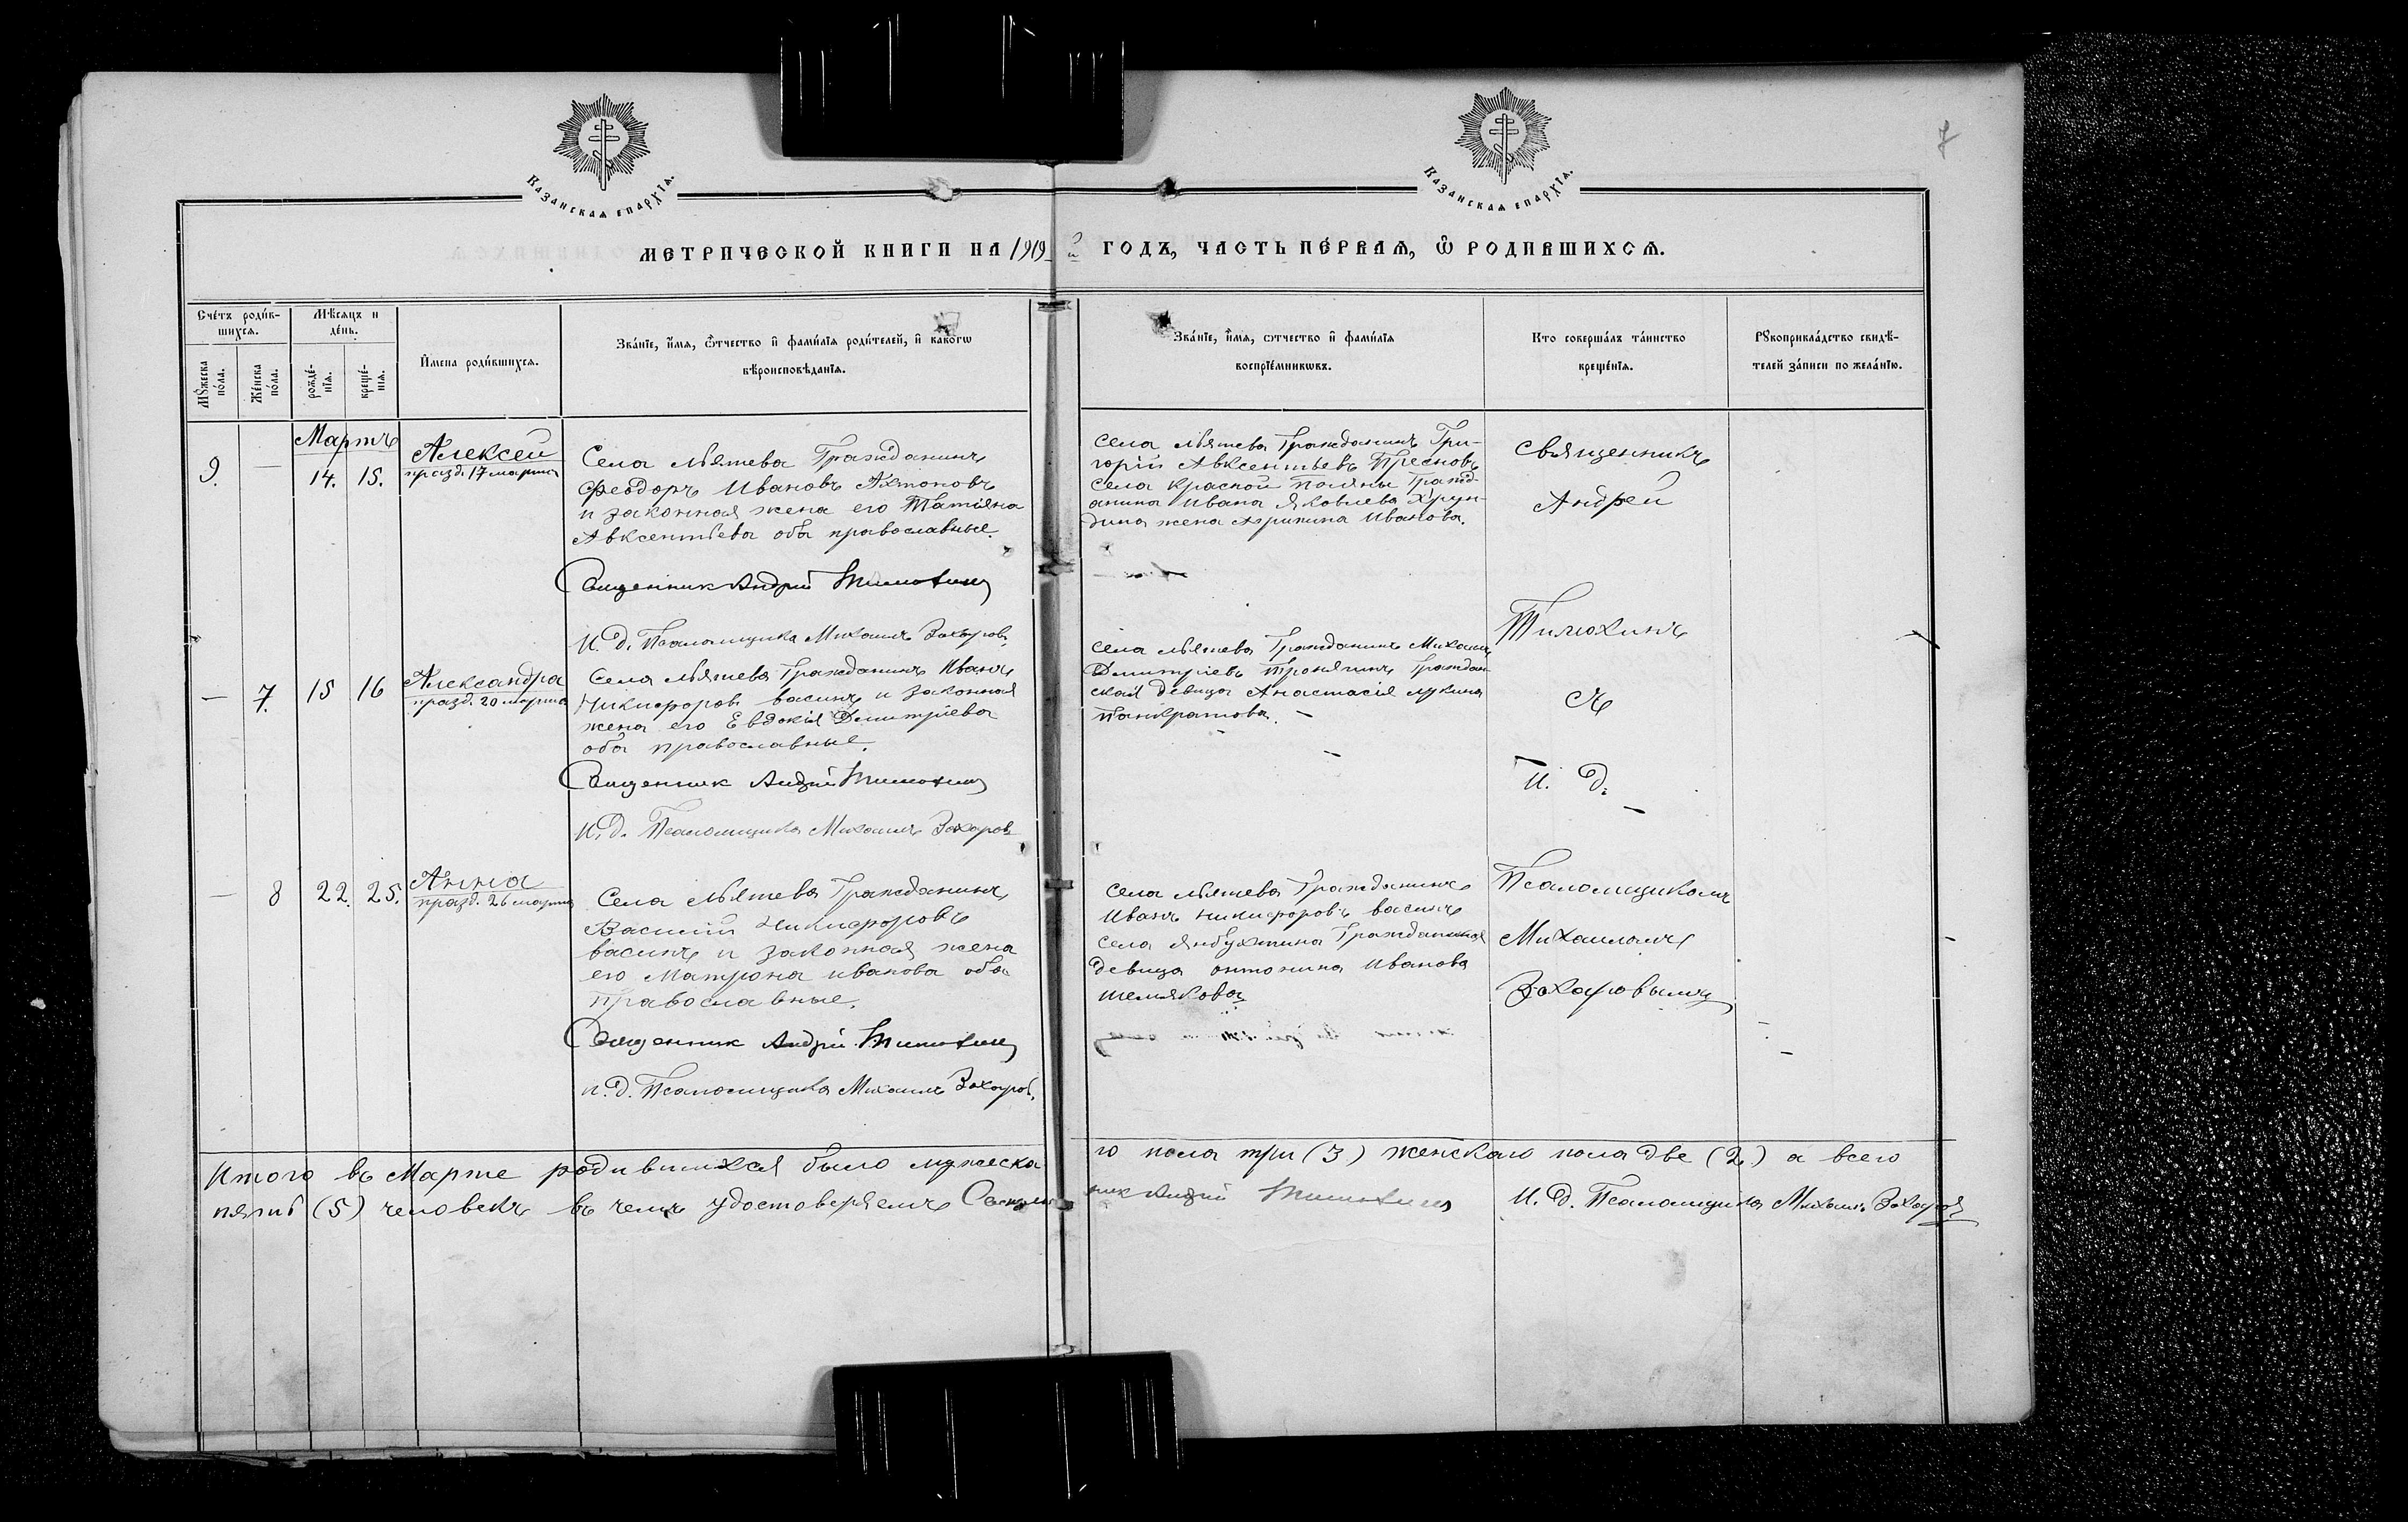 Казанская епархїя.
Казанская епархїя.
7
МЕТРИЧЕСКОЙ КНИГИ НА 1919 й ГОДЪ, ЧАСТЬ ПЕ́РВАЯ, Ѿ РОДИВШИХСѦ.
Сче́тъ роди́в-
шихсѧ.
Мѣ́сѧцъ и
де́нь.
Мꙋ́жеска
по́ла.
Же́нска
по́ла.
рожде́-
нїѧ.
креще́-
нїѧ.
И҆мена роди́вшихсѧ.
Зва́нїе, и҆́мѧ, ѻ҆́тчество и҆ фами́лїѧ роди́телей, и҆ како́гѡ
вѣроисповѣ́данїѧ.
Зва́нїе, и҆́мѧ, ѻтчество и҆ фами́лїѧ
воспрїе́мникѡвъ.
Кто соверша́лъ та́инство
креще́нїѧ.
Рꙋкоприкла́дство свидѣ́-
телей за́писи по жела́нїю.
Мартъ
9.
—
14.
15.
Алексей
празд. 17 марта
Села Мѣтева Гражданинъ
Феодоръ Ивановъ Ахтоновъ
и законная жена его Татіяна
Авксентьева оба православные.
Священник Андрей Тимохин
И. д. Псаломщика Михаилъ Захаровъ
Села Мѣтева Гражданинъ Гри-
горій Авксентьевъ Пресновъ
Села Красной Поляны Гражд-
анина Ивана Яковлева Хрун-
дина жена Агрипина Иванова.
Священникъ
Андрей
Тимохинъ
съ
И. д.
Псаломщикомъ
Михаиломъ
Захаровымъ
—
7.
15
16
Александра
празд. 20 марта
Села Мѣтева Гражданинъ Иванъ
Никифоровъ васинъ и законная
жена его Евдокія Димитріева
оба православные.
Священник Андрей Тимохин
И. д. Псаломщика Михаилъ Захаровъ
Села Мѣтева Гражданинъ Михаилъ
Димитріевъ Граждан-
ская девица Анастасія лукина
Панкратова.
—
8
22.
25.
Анна
празд. 26 марта
Села Мѣтева Гражданинъ
Василій Никифоровъ
васинъ и законная жена
его Матрона иванова оба
Православные.
Священник Андрей Тимохин
и. д. Псаломщика Михаилъ Захаров.
Села Мѣтева Гражданинъ
Иванъ никифоровъ васинъ
села Янбухтина Гражданская
девица антонина Иванова
шемякова
Итого въ Марте родившихся было мужеска го пола три (3) женскаго пола две (2) а всего
пять (5) человекъ въ чемъ удостоверяемъ Священник Андрей Тимохин И. д. Псаломщика Михаилъ Захаров